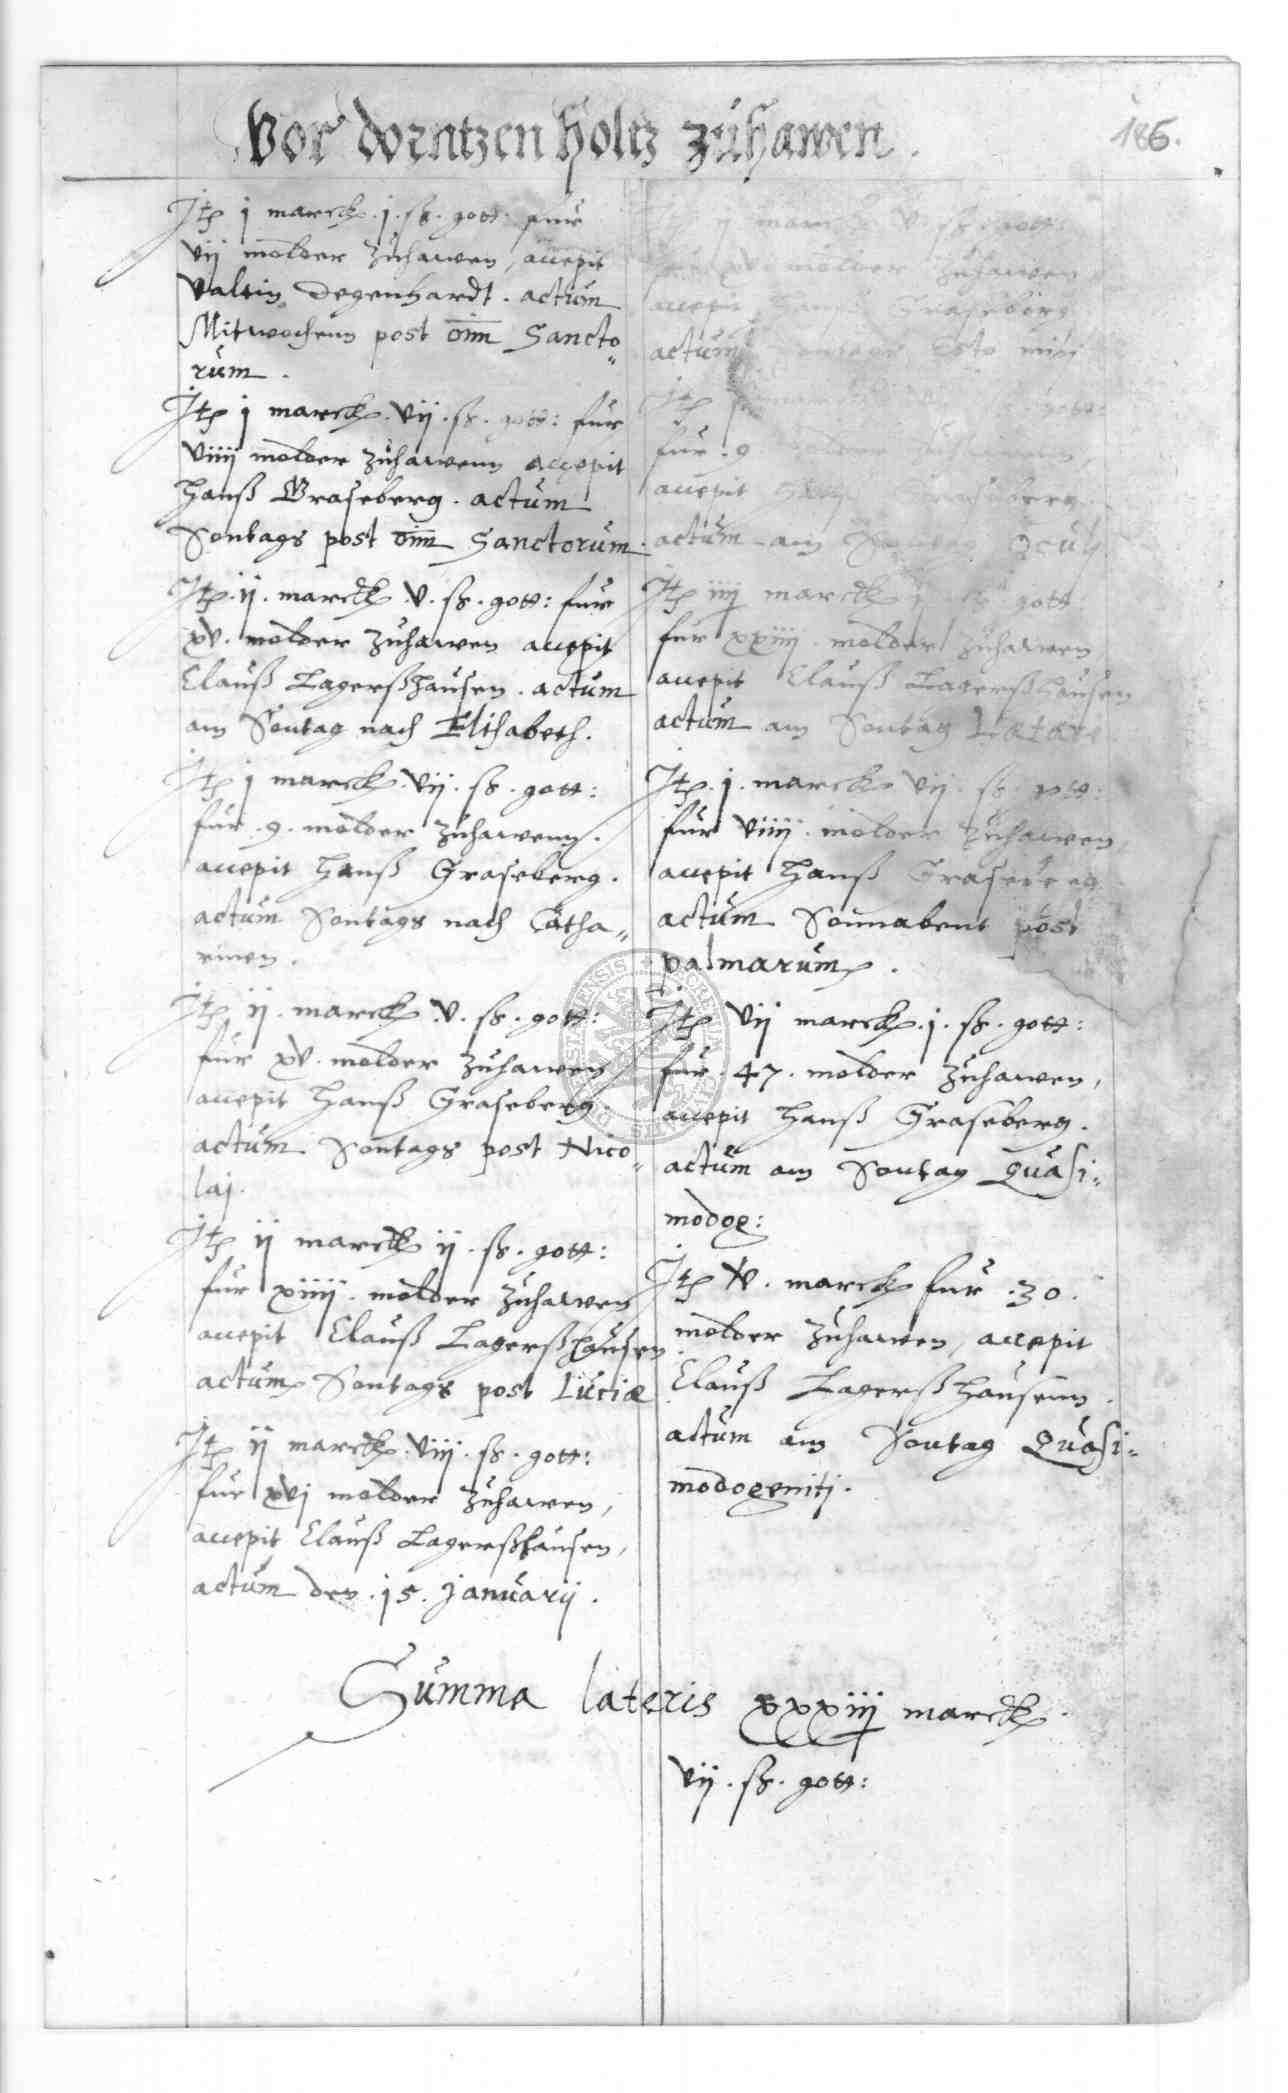 Vor dorntzen holtz zuhawen.
186.
Jtem j marck. j. ß. gott. fur
vij molder zuhawen, accepit
Valtin Degenhardt. actum
Mitwochenn post oim Sancto„
rum.
Jtem j marck. vij. ß. gott: fur
viiij molder zuhawenn accepit
Hanß Graseberg. actum
Sontags post oim Sanctorum.
Jtem. ij. marck. v. ß. gott: fur
xv. molder zuhawen accepit
Clauß Lagerßhausen. actum
am Sontag nach Elisabeth.
Jtem j marck. vij. ß. gott:
fur. 9. molder zuhawenn.
accepit Hanß Graseberg.
actum Sontags nach Catha„
rinen.
Jtem ij. marck. v. ß. gott:
fur xv. molder zuhawen
accepit Hanß Graseberg.
actum Sontags post Nico„
laj.
Jtem ij marck ij. ß. gott:
fur xiiij. molder zuhawen
accepit Clauß Lagerßhausen
actum Sontags post Luciæ
Jtem ij marck. viij. ß. gott:
fur xvj molder zuhawen,
accepit Clauß Lagerßhausen,
actum den. 15. Januarij.
Jtem ij marck v. ß. gott:
xv. molder zuhawen
accepit Hanß Graseberg
actum Sontags Esto mihi
Jtem gott:
fur. 9
accepit Graseberg.
actum am Sontag Oculj
Jtem iiij marck gott
fur xxiiij. molder zuhawen,
accepit Clauß Lagerßhausen
actum am Sontag Lætare
Jtem. j. marck vij. ß. gott:
fur viiij. molder zuhawen,
accepit Hanß Graseberg
actum Sonnabent post
palmarum.
Jtem vij marck. j. ß. gott:
fur. 47. molder zuhawen,
accepit Hanß Graseberg.
actum am Sontag Quasi„
modog:
Jtem v. marck fur. 30.
molder zuhawen, accepit
Clauß Lagerßhausenn.
actum am Sontag Quasi„
modogenitj.
Summa lateris xxxiij marck.
vij. ß. gott: